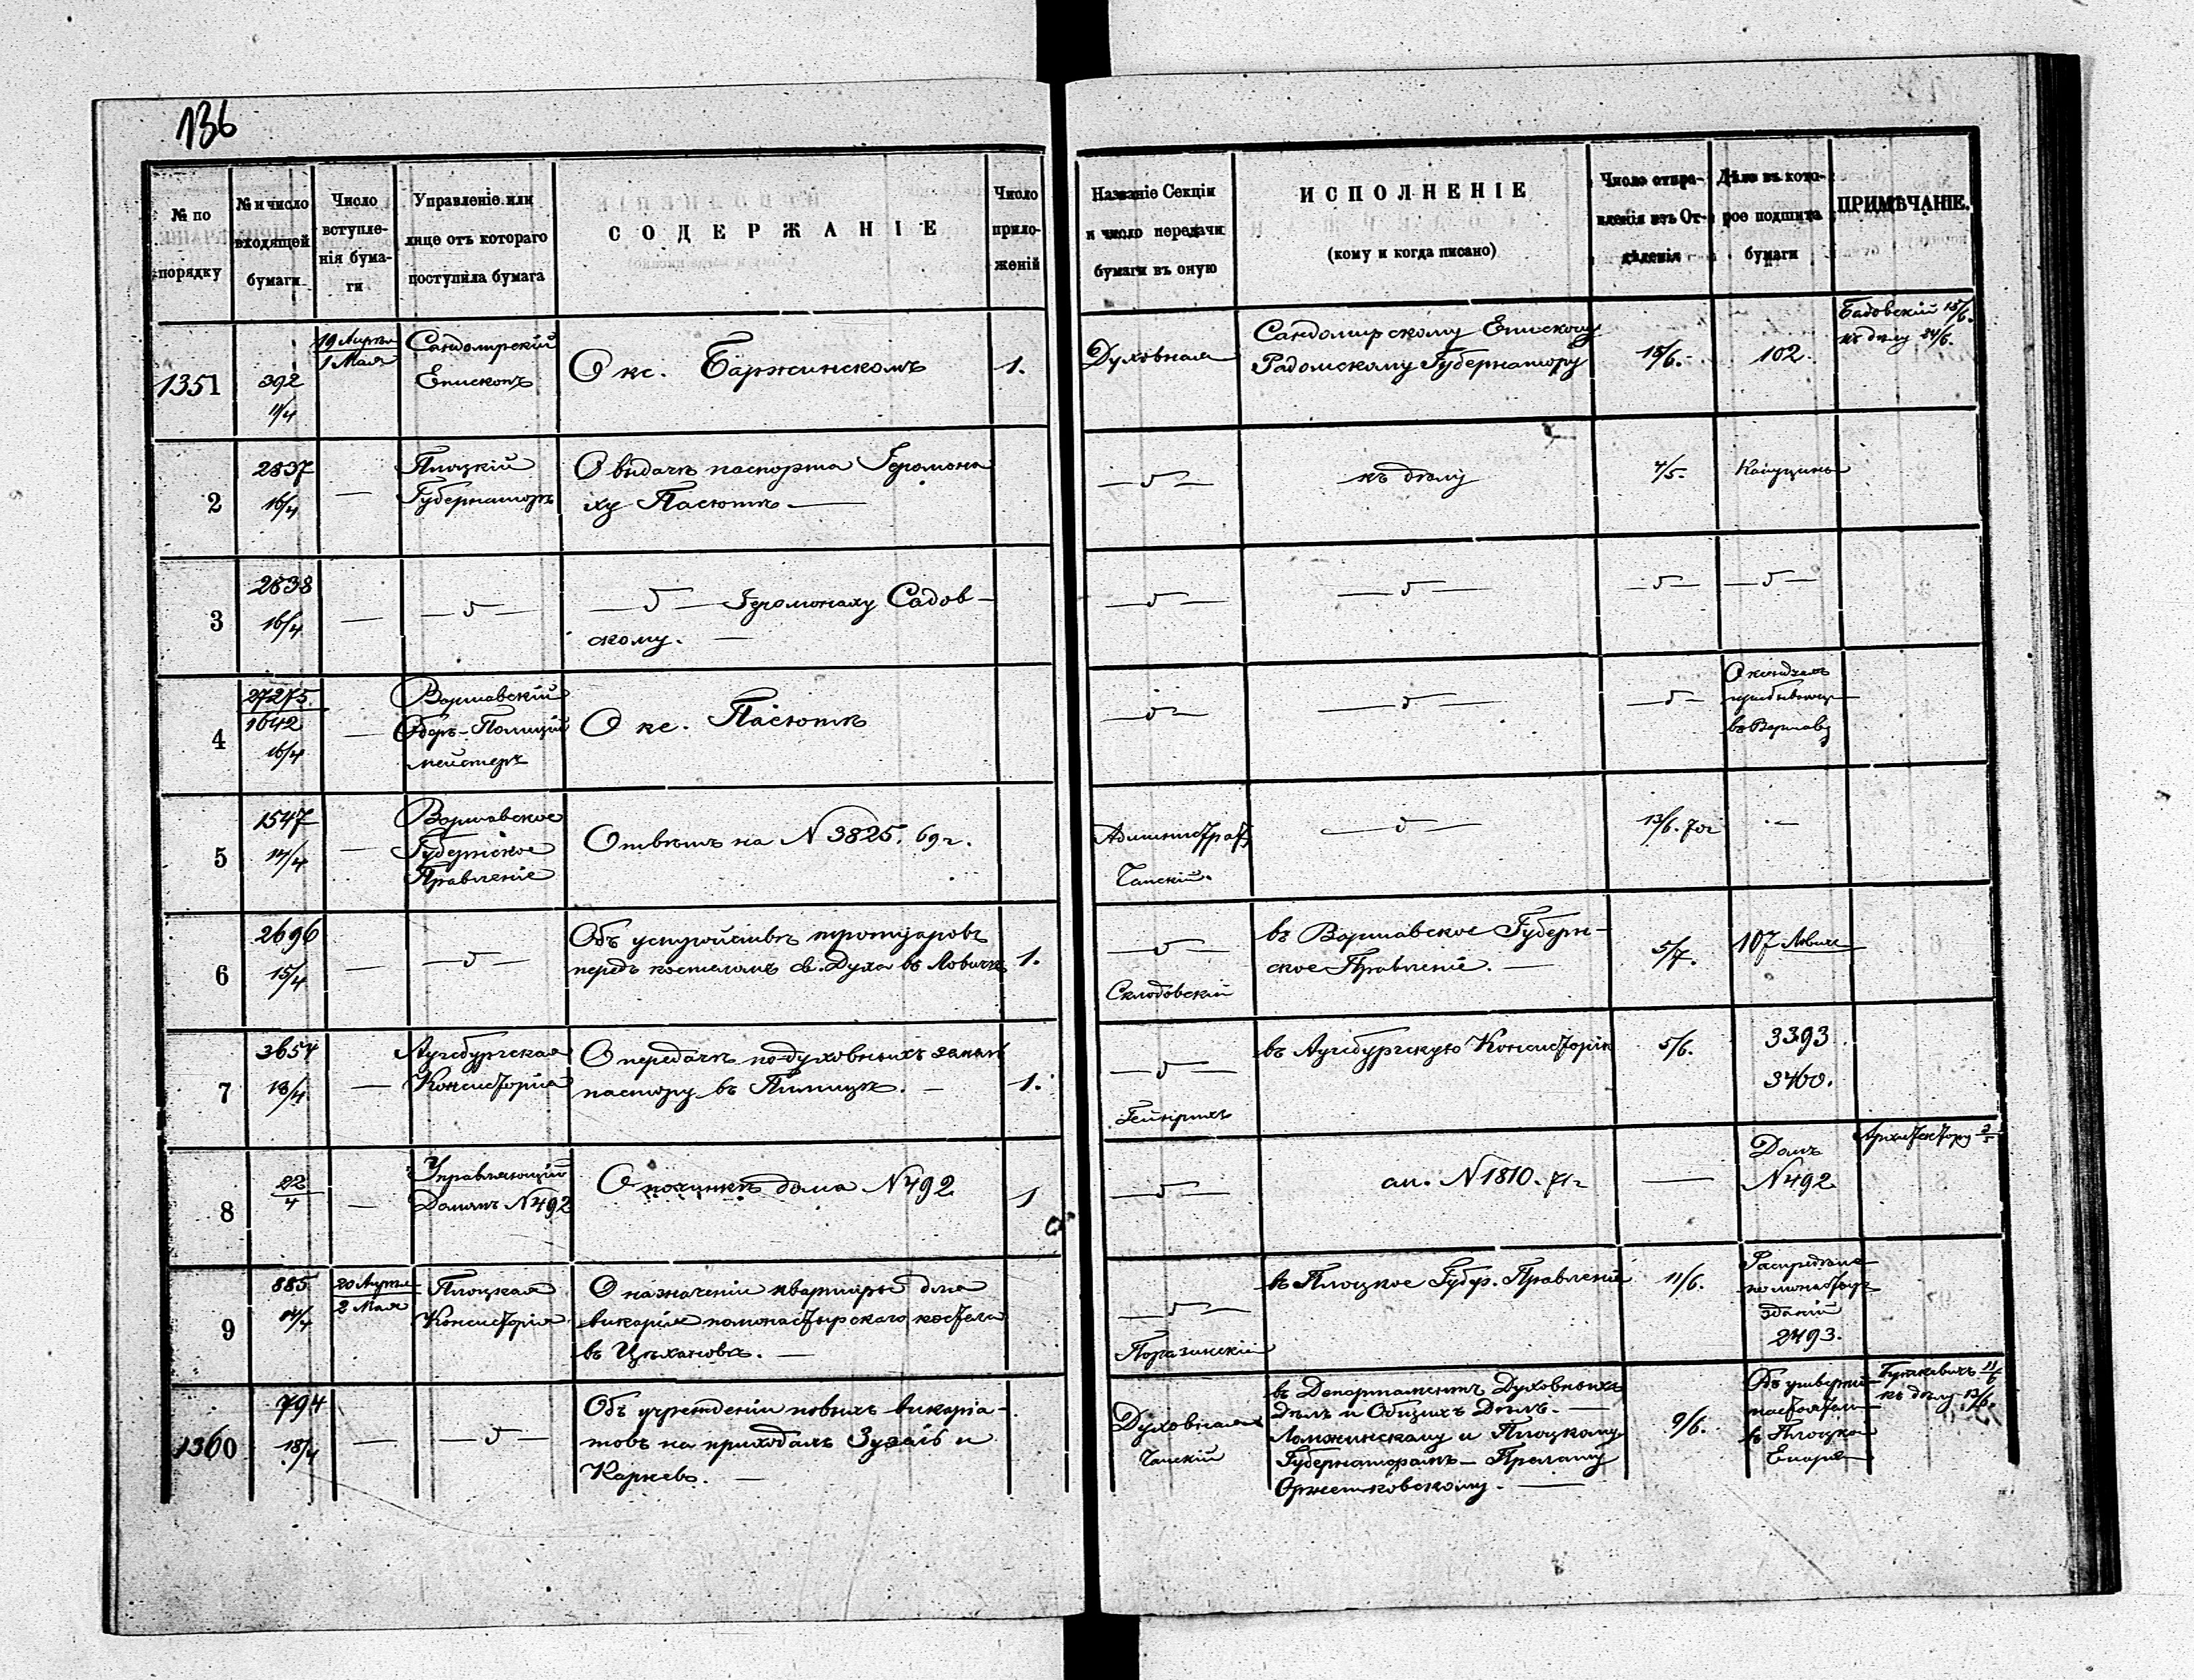 136
№ по порядку
№ и число входящей бумаги
Число вступле-нія бума-ги
Управленіе или лице отъ котораго поступила бумага
СОДЕРЖАНІЕ
Число прило-женій
Названіе Секціи и число передачи бумаги въ оную
ИСПОЛНЕНІЕ
(кому и когда писано)
Число отпра-вленія изъ От-дѣленія
Дѣло въ кото-рое подшита бумаги
ПРИМѢЧАНІЕ.
1351
392
11/4
19 Апрѣля
1 Мая
Сандомірскій
Епископъ
О кс. Баржинскомъ
1.
Духовная
Сандомирскому Епископу
Радомскому Губернатору
15/6.
102.
15/6.
къ дѣлу 24/6.
2
2837
16/4
—
Плоцкій
Губернаторъ
О выдачѣ паспорта Іеромона
ху Пасютѣ —
къ дѣлу
4/5.
3
2838
16/4
—
Іеромонаху Садов-
скому. —
4
27275.
1642
16/4
—
Варшавскій
Оберъ-Полицій
мейстеръ
О кс. Пасютѣ
О ксендзахъ
въ Варшаву
5
1547
14/4
—
Варшавское
Губернское
Правленіе
Отвѣтъ на N 3825. 69 г.
Чапскій.
13/6. 70 г
6
2696
15/4
—
Объ устройствѣ тротуаровъ
передъ костеломъ св. Духа въ Ловичѣ
1.
Склодовскій
въ Варшавское Губерн-
ское Правленіе. —
5/7.
107 Ловичъ
7
3654
18/4
—
Аугсбургская
Консисторія
О передачѣ по-духовныхъ
пастору въ Пилицѣ. —
1.
Гейнрихъ
въ Аугсбургскую Консисторію
5/6.
3393
3400.
8
22
4
—
Управляющій
Домомъ N 492
О починкѣ дома N 492
1
ап. N 1810. 71 г
—
Домъ
N 492
Архитектору
9
885
14/4
20 Апрѣля
2 Мая
Плоцкая
Консисторія
О назначеніи квартиры для
викарія помонастырскаго костела
въ Цѣхановѣ. —
въ Плоцкое Губер. Правленіе
11/6.
зданій
2493.
1360
794
18/4
—
Объ учрежденіи новыхъ викаріа-
товъ на приходахъ и
—
Духовная
Чапскій
въ Департаментъ Духовныхъ
Дѣлъ и Общихъ Дѣлъ. —
Ломжинскому и Плоцкому
Губернаторамъ — Прелату
9/6.
въ Плоцкой
Епархіи
къ дѣлу 13/6.